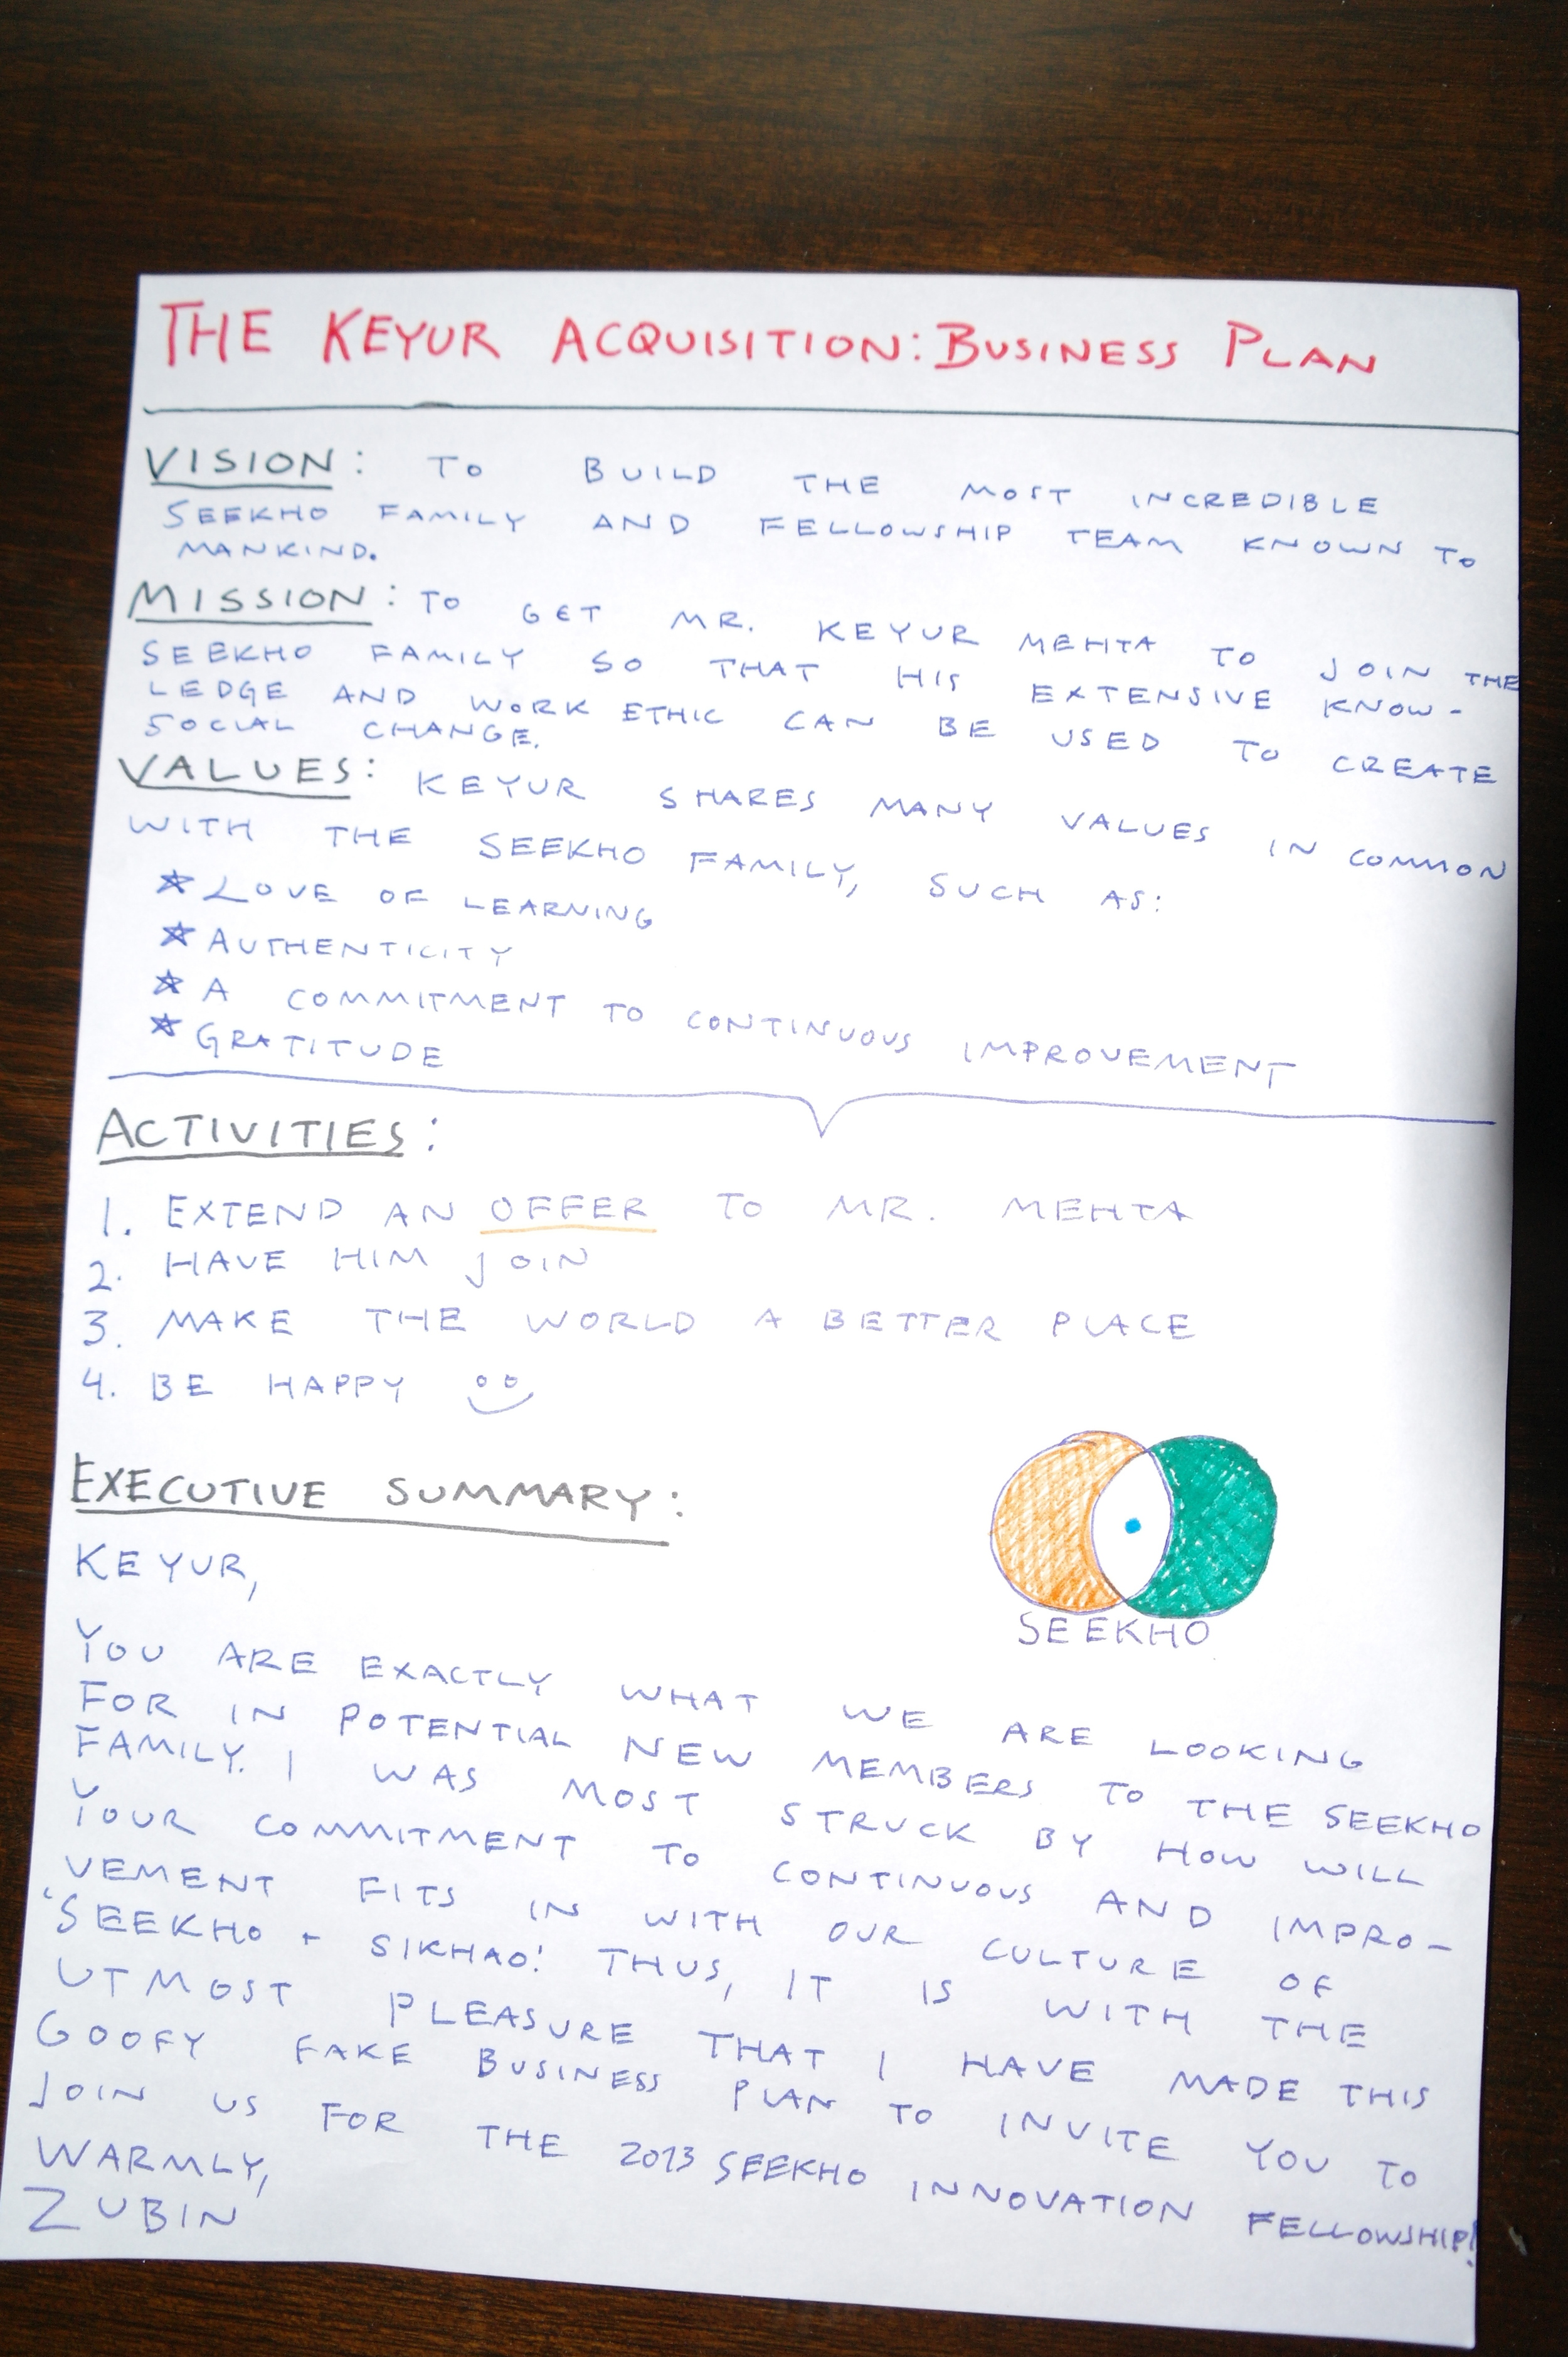 THE KEYUR ACQUISITION: BUSINESS PLAN
VISION: TO BUILD THE MOST INCREDIBLE
SEEKHO FAMILY AND FELLOWSHIP TEAM KNOWN TO
MANKIND.
MISSION: TO GET MR. KEYUR MEHTA TO JOIN THE
SEEKHO FAMILY SO THAT HIS EXTENSIVE KNOW-
LEDGE AND WORK ETHIC CAN BE USED TO CREATE
SOCIAL CHANGE.
VALUES: KEYUR SHARES MANY VALUES IN COMMON
WITH THE SEEKHO FAMILY, SUCH AS:
* LOVE OF LEARNING
* AUTHENTICITY
* A COMMITMENT TO CONTINUOUS IMPROVEMENT
* GRATITUDE
ACTIVITIES:
1. EXTEND AN OFFER TO MR. MEHTA
2. HAVE HIM JOIN
3. MAKE THE WORLD A BETTER PLACE
4. BE HAPPY
EXECUTIVE SUMMARY:
SEEKHO
KEYUR,
YOU ARE EXACTLY WHAT WE ARE LOOKING
FOR IN POTENTIAL NEW MEMBERS TO THE SEEKHO
FAMILY. I WAS MOST STRUCK BY HOW WILL
YOUR COMMITMENT TO CONTINUOUS AND IMPRO-
VEMENT FITS IN WITH OUR CULTURE OF
'SEEKHO + SIKHAO! THUS, IT IS WITH THE
UTMOST PLEASURE THAT I HAVE MADE THIS
GOOFY FAKE BUSINESS PLAN TO INVITE YOU TO
JOIN US FOR THE 2013 SEEKHO INNOVATION FELLOWSHIP!
WARMLY,
ZUBIN